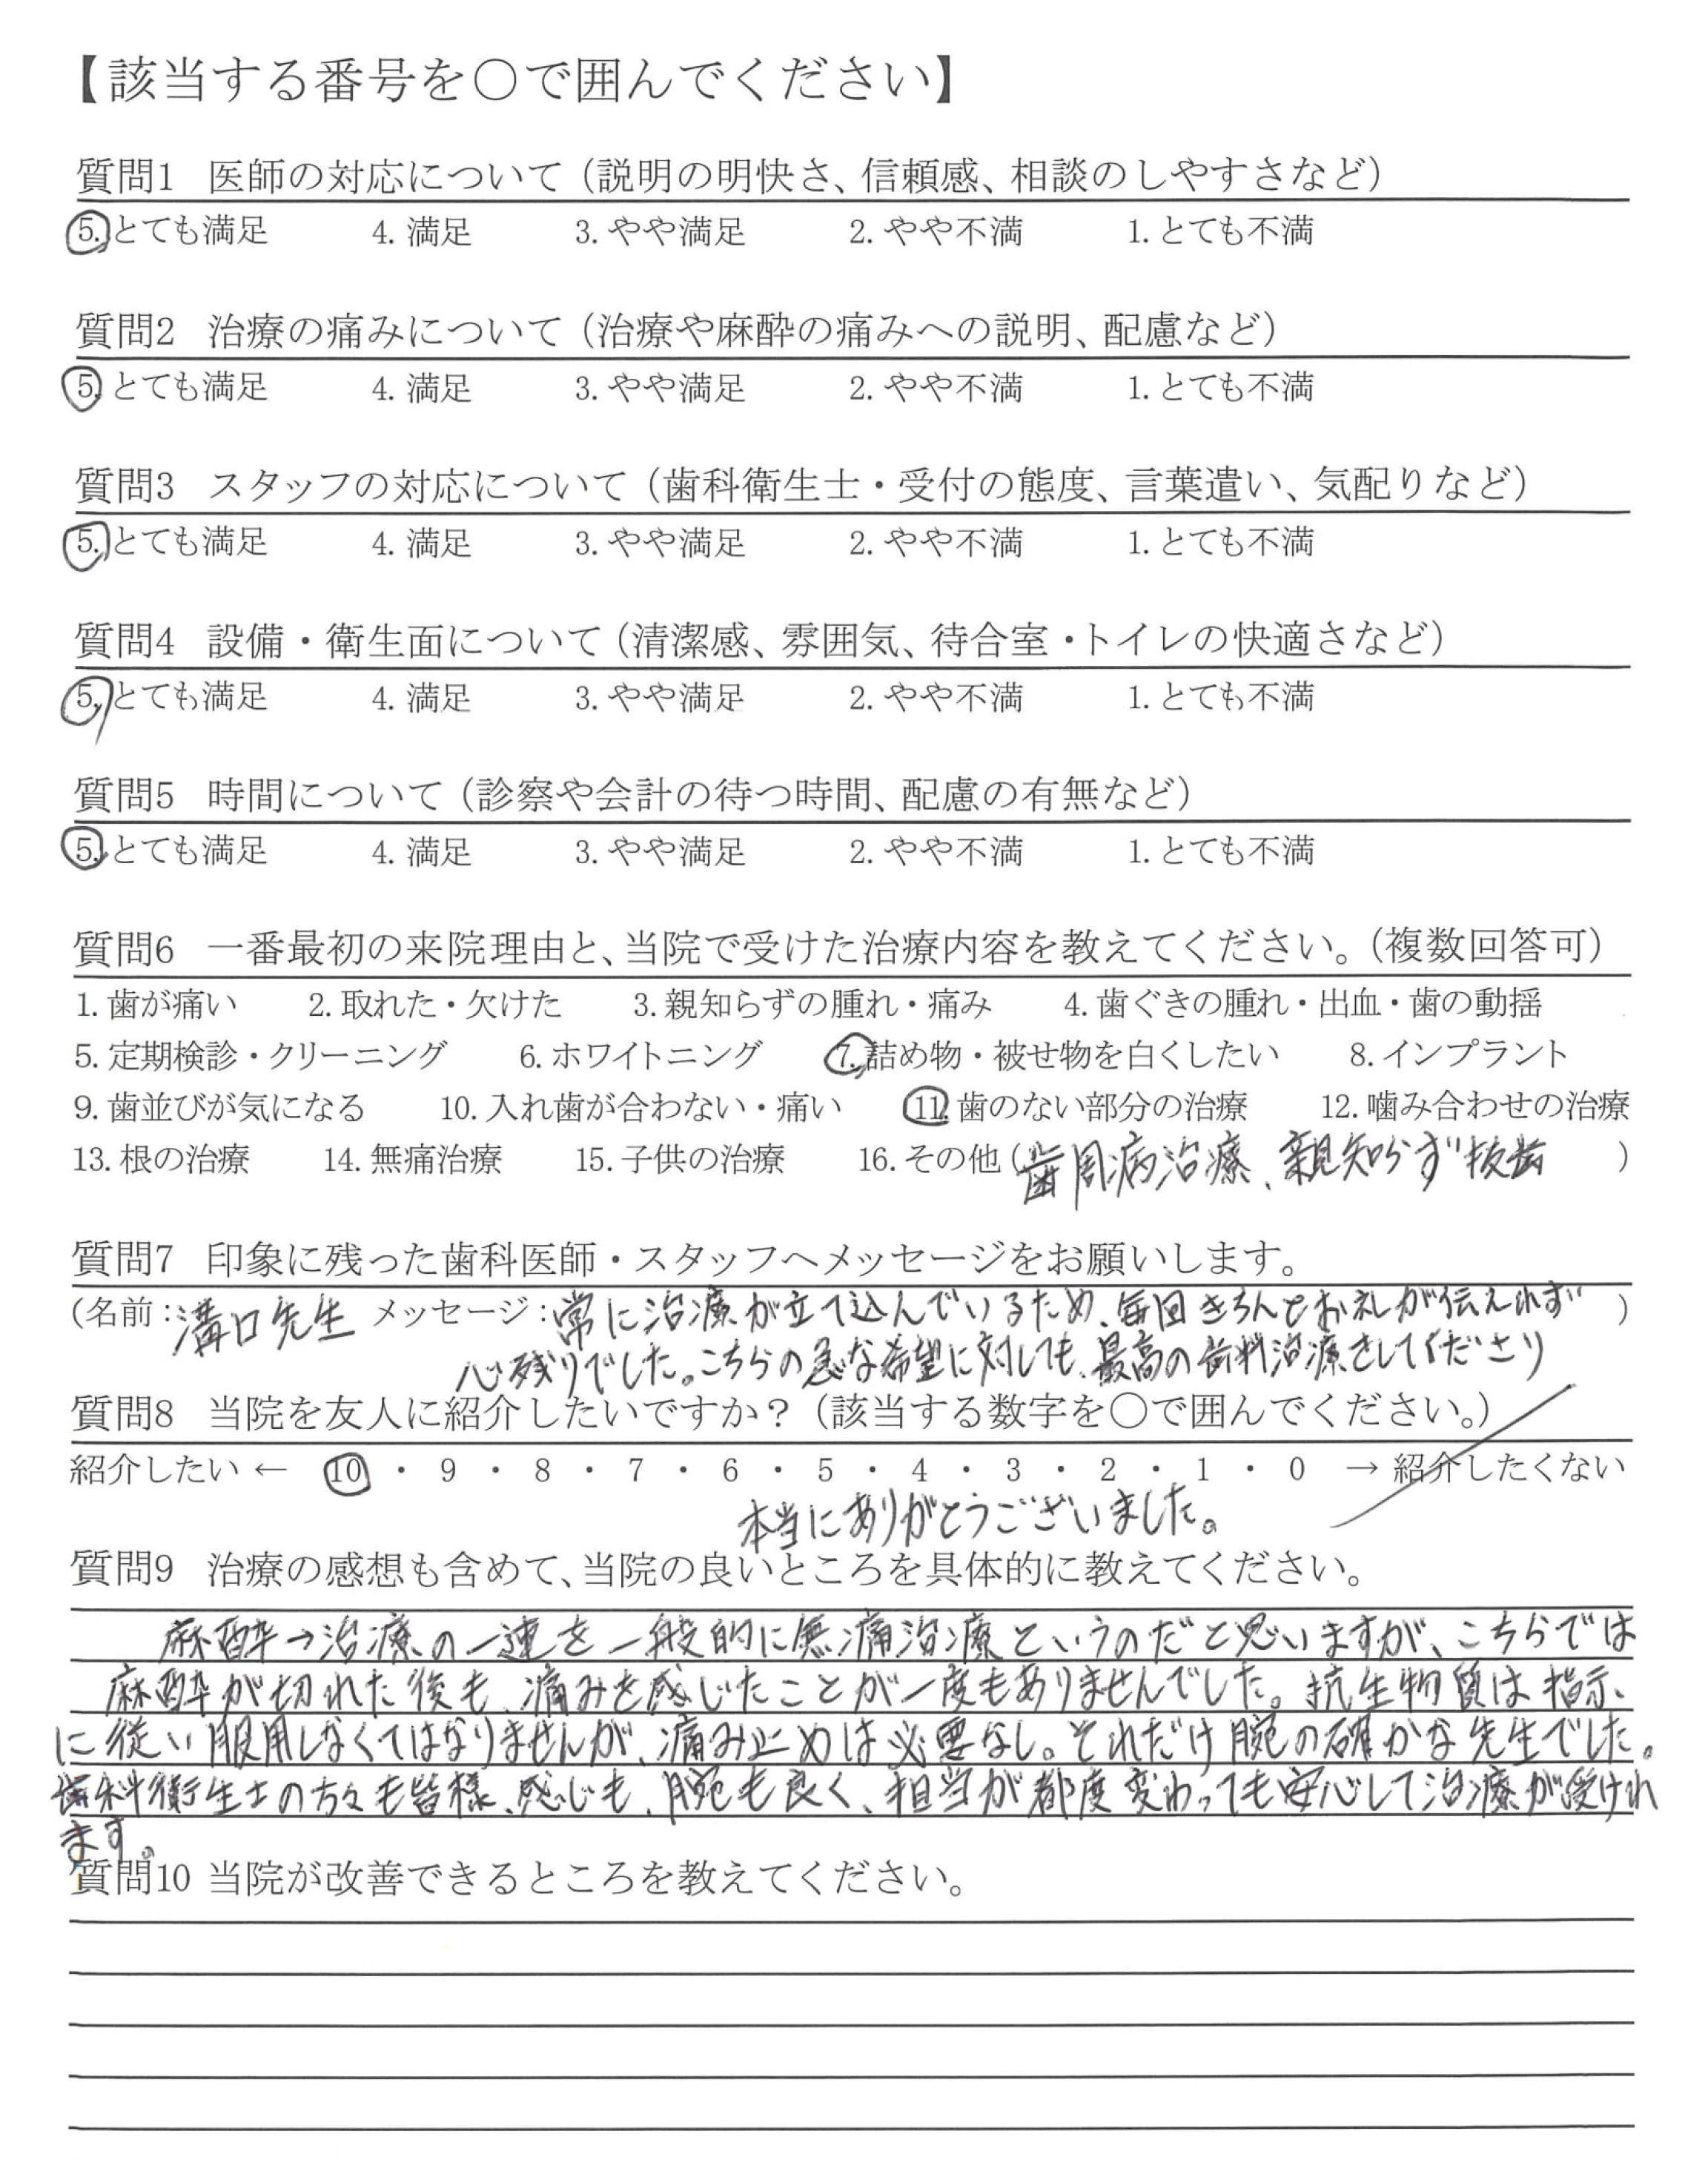 【該当する番号を○で囲んでください】
質問1 医師の対応について（説明の明快さ、信頼感、相談のしやすさなど）
5. とても満足 4. 満足 3. やや満足 2. やや不満 1. とても不満
質問2 治療の痛みについて（治療や麻酔の痛みへの説明、配慮など）
5. とても満足 4. 満足 3. やや満足 2. やや不満 1. とても不満
質問3 スタッフの対応について（歯科衛生士・受付の態度、言葉遣い、気配りなど）
5. とても満足 4. 満足 3. やや満足 2. やや不満 1. とても不満
質問4 設備・衛生面について（清潔感、雰囲気、待合室・トイレの快適さなど）
5. とても満足 4. 満足 3. やや満足 2. やや不満 1. とても不満
質問5 時間について（診察や会計の待つ時間、配慮の有無など）
5. とても満足 4. 満足 3. やや満足 2. やや不満 1. とても不満
質問6 一番最初の来院理由と、当院で受けた治療内容を教えてください。（複数回答可）
1. 歯が痛い 2. 取れた・欠けた 3. 親知らずの腫れ・痛み 4. 歯ぐきの腫れ・出血・歯の動揺
5. 定期検診・クリーニング 6. ホワイトニング 7. 詰め物・被せ物を白くしたい 8. インプラント
9. 歯並びが気になる 10. 入れ歯が合わない・痛い 11. 歯のない部分の治療 12. 噛み合わせの治療
13. 根の治療 14. 無痛治療 15. 子供の治療 16. その他（歯周病治療、親知らず抜歯）
質問7 印象に残った歯科医師・スタッフへメッセージをお願いします。
（名前：溝口先生 メッセージ：常に治療が立て込んでいるため、毎回きちんとお礼が伝えれず）
心残りでした。こちらの急な希望に対しても、最高の歯科治療をしてくださり
質問8 当院を友人に紹介したいですか？（該当する数字を○で囲んでください。）
紹介したい ← 10 ・ 9 ・ 8 ・ 7 ・ 6 ・ 5 ・ 4 ・ 3 ・ 2 ・ 1 ・ 0 → 紹介したくない
本当にありがとうございました。
質問9 治療の感想も含めて、当院の良いところを具体的に教えてください。
麻酔→治療の一連を一般的に無痛治療というのだと思いますが、こちらでは
麻酔が切れた後も、痛みを感じたことが一度もありませんでした。抗生物質は指示
に従い服用しなくてはなりませんが、痛み止めは必要なし。それだけ腕の確かな先生でした。
歯科衛生士の方々も皆様、感じも、腕も良く、担当が都度変わっても安心して治療が受けれ
ます。
質問10 当院が改善できるところを教えてください。